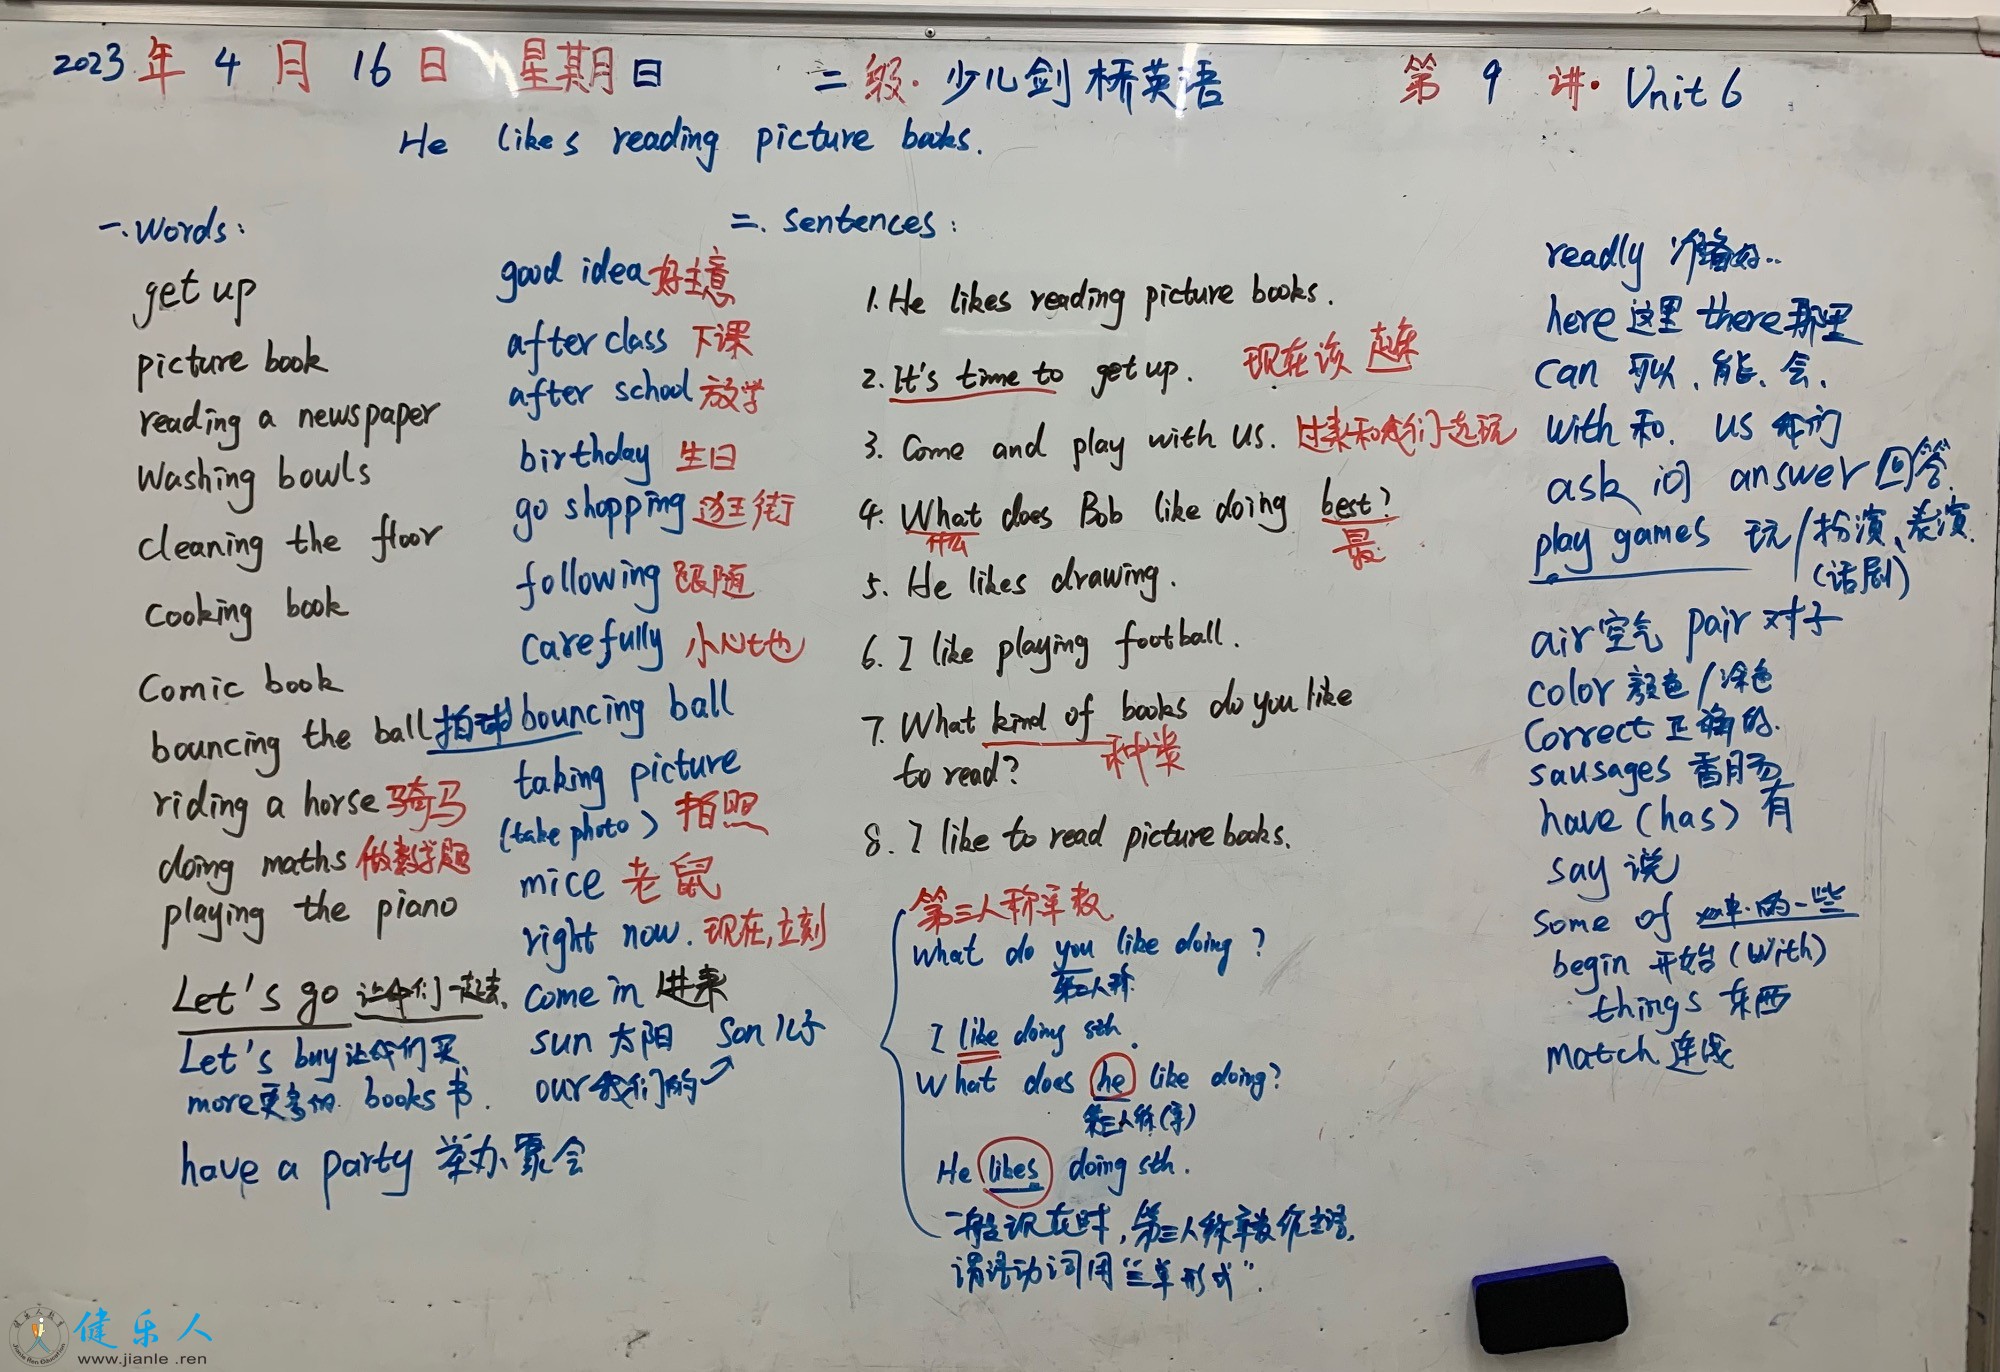 2023年4月16日 星期日 二级·少儿剑桥英语 第9讲·Unit 6
He likes reading picture books.
一.Words:
get up
picture book
reading a newspaper
Washing bowls
cleaning the floor
cooking book
Comic book
bouncing the ball 拍球
riding a horse 骑马
doing maths 做数学题
playing the piano
Let's go 让我们一起去.
Let's buy 让我们买
more更多的 books 书.
have a party 举办聚会
good idea 好主意
after class 下课
after school 放学
birthday 生日
go shopping 逛街
following 跟随
carefully 小心地
bouncing ball
taking picture
(take photo) 拍照
mice 老鼠
right now. 现在,立刻
come in 进来
sun 太阳 Son 儿子
our 我们的
二. Sentences:
1. He likes reading picture books.
2. It's time to get up. 现在该起床
3. Come and play with us. 过来和我们一起玩
4. What does Bob like doing best?
什么 最
5. He likes drawing.
6. I like playing football.
7. What kind of books do you like
种类
to read?
8. I like to read picture books.
第三人称单数
What do you like doing?
第二人称
I like doing sth.
What does he like doing?
第三人称(单)
He likes doing sth.
一般现在时,第三人称单数作主语,
谓语动词用"三单形式".
readly 准备好..
here 这里 there 那里
can 可以、能、会.
with 和. us 我们
ask 问 answer 回答.
play games 玩/扮演、表演.
(话剧)
air 空气 pair 对子
color 颜色/涂色
Correct 正确的.
sausages 香肠
have (has) 有
say 说
Some of 的一些
begin 开始 (with)
things 东西
match 连线
健乐人
www.jianle.ren